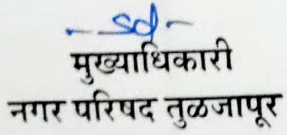 -sd-
मुख्याधिकारी
नगर परिषद तुळजापूर